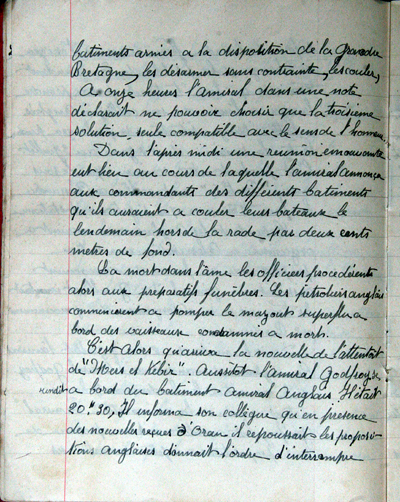 batiments armés a la disposition de la Grande
Bretagne, les désarmer sans contrainte, les couler,
A onze heures l'amiral dans une note
déclarait ne pouvoir choisir que la troisième
solution seule compatible avec le sens de l'honneur.
Dans l'après midi une réunion émouvante
eut lieu au cours de laquelle l'amiral annonça
aux commandants des différents batiments
qu'ils auraient a couler leurs bateaux le
lendemain hors de la rade par deux cents
mètres de fond.
La mort dans l'âme les officiers procédèrent
alors aux préparatifs funèbres. Les pétroliers anglais
commencèrent a pomper le mazout superflu a
bord des vaisseaux condamnés a mort.
C'est Alors qu'arriva la nouvelle de l'attentat
de "Mers el Kebir". Aussitot l'amiral Godfroy se
rendit a bord du batiment amiral Anglais. Il était
20.h 30, Il informa son collègue qu'en présence
des nouvelles reçues d'Oran il repoussait les proposi-
tions anglaises donnait l'ordre d'interrompre